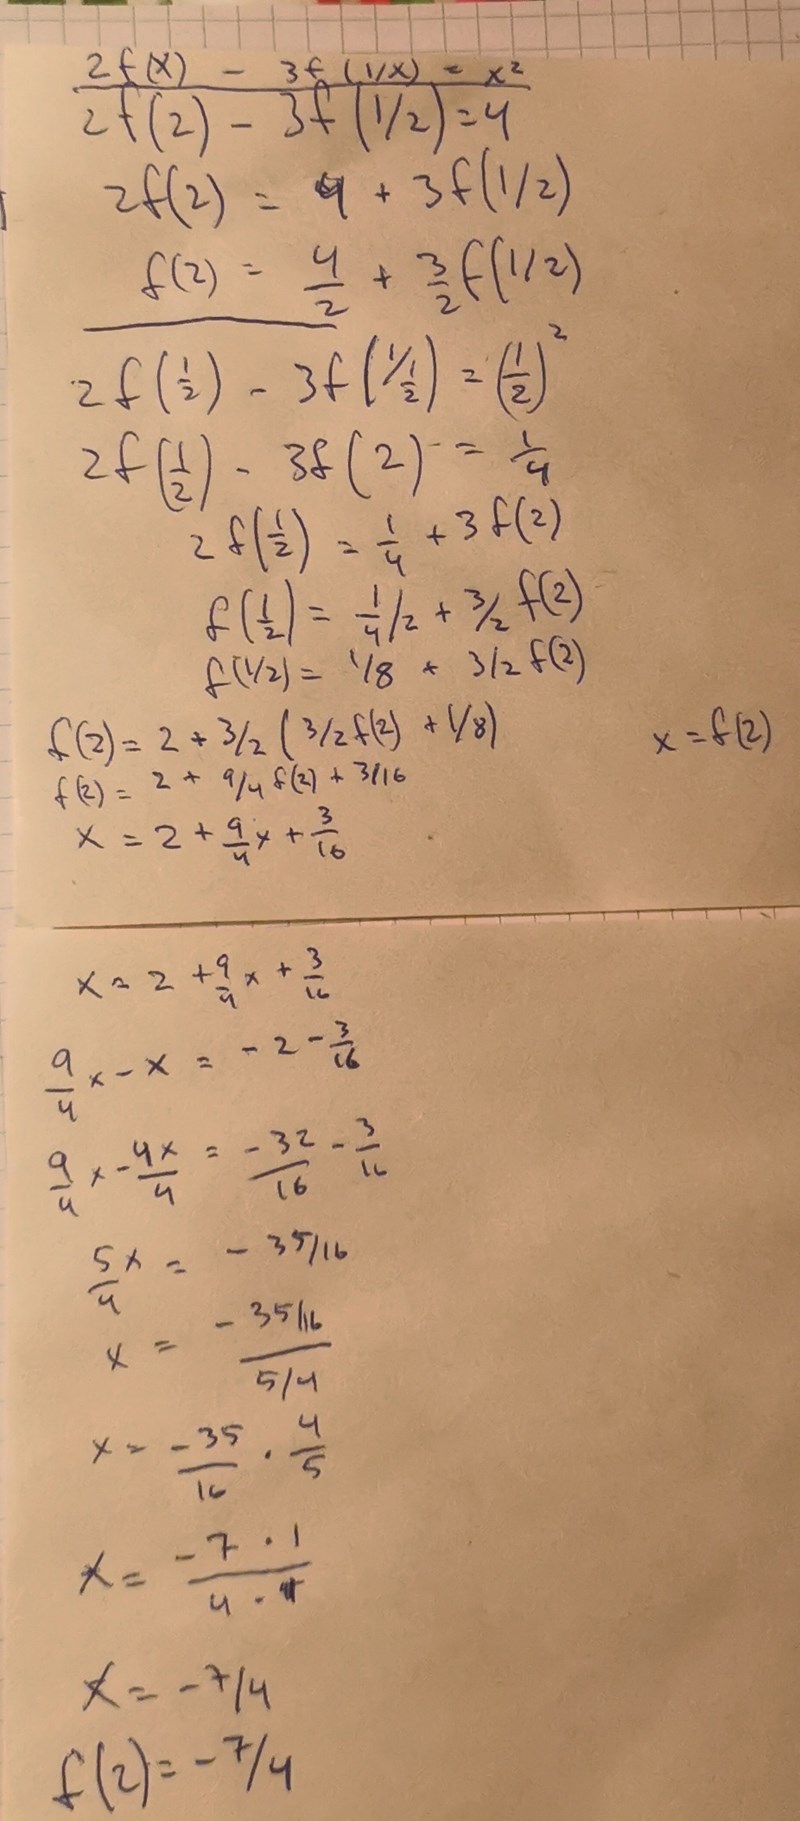 2f(x) - 3f(1/x) = x²
2f(2) - 3f(1/2) = 4
2f(2) = 4 + 3f(1/2)
f(2) = 4/2 + 3/2 f(1/2)
2f(1/2) - 3f(1/1/2) = (1/2)²
2f(1/2) - 3f(2) = 1/4
2f(1/2) = 1/4 + 3f(2)
f(1/2) = 1/4/2 + 3/2 f(2)
f(1/2) = 1/8 + 3/2 f(2)
f(2) = 2 + 3/2 (3/2 f(2) + 1/8)
x = f(2)
f(2) = 2 + 9/4 f(2) + 3/16
x = 2 + 9/4 x + 3/16
x = 2 + 9/4 x + 3/16
9/4 x - x = -2 - 3/16
9/4 x - 4x/4 = -32/16 - 3/16
5/4 x = -35/16
x = -35/16 / 5/4
x = -35/16 · 4/5
x = -7 · 1 / 4 · 1
x = -7/4
f(2) = -7/4